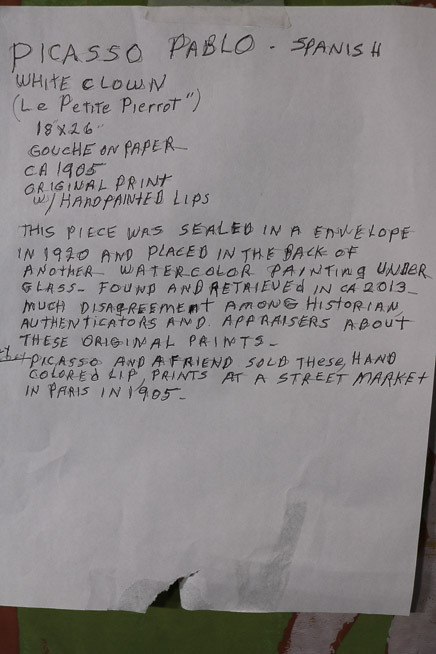 PICASSO PABLO - SPANISH
WHITE CLOWN
(Le Petite Pierrot")
18"X26"
GOUCHE ON PAPER
CA 1905
ORIGINAL PRINT
W/ HANDPAINTED LIPS
THIS PIECE WAS SEALED IN A ENVELOPE
IN 1920 AND PLACED IN THE BACK OF
ANOTHER WATERCOLOR PAINTING UNDER
GLASS - FOUND AND RETRIEVED IN CA 2013 -
MUCH DISAGREEMENT AMONG HISTORIAN,
AUTHENTICATORS AND APPRAISERS ABOUT
THESE ORIGINAL PRINTS -
PICASSO AND A FRIEND SOLD These, HAND
COLORED LIP, PRINTS AT A STREET MARKET
IN PARIS IN 1905 -